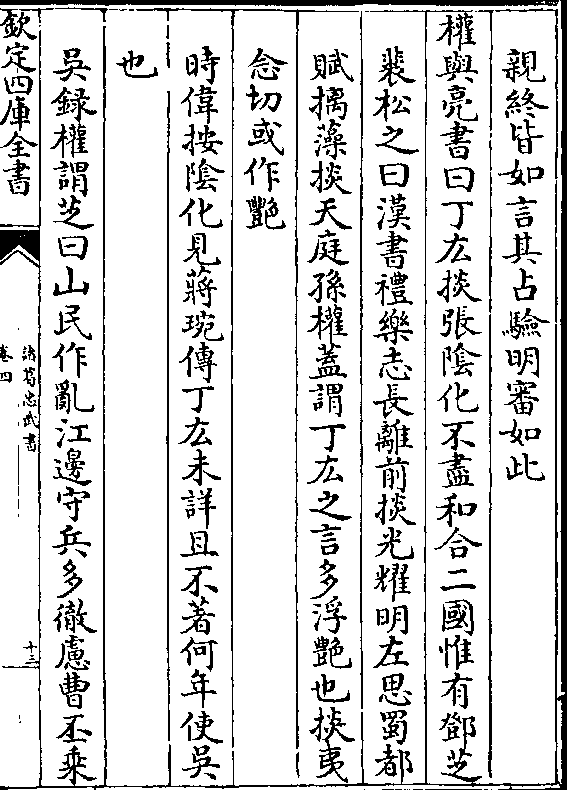 親終皆如言其占驗明審如此
權與亮書曰丁厷掞張陰化不盡和合二國惟有鄧芝
裴松之曰漢書禮樂志長離前掞光耀明左思蜀都
賦摛藻掞天庭孫權蓋謂丁厷之言多浮艷也掞夷
念切或作艷
時偉按陰化見蔣琬傳丁厷未詳且不著何年使吳
也
吳録權謂芝曰山民作亂江邊守兵多徹慮曹丕乗
欽定四庫全書
諸葛忠武書
卷四
十三